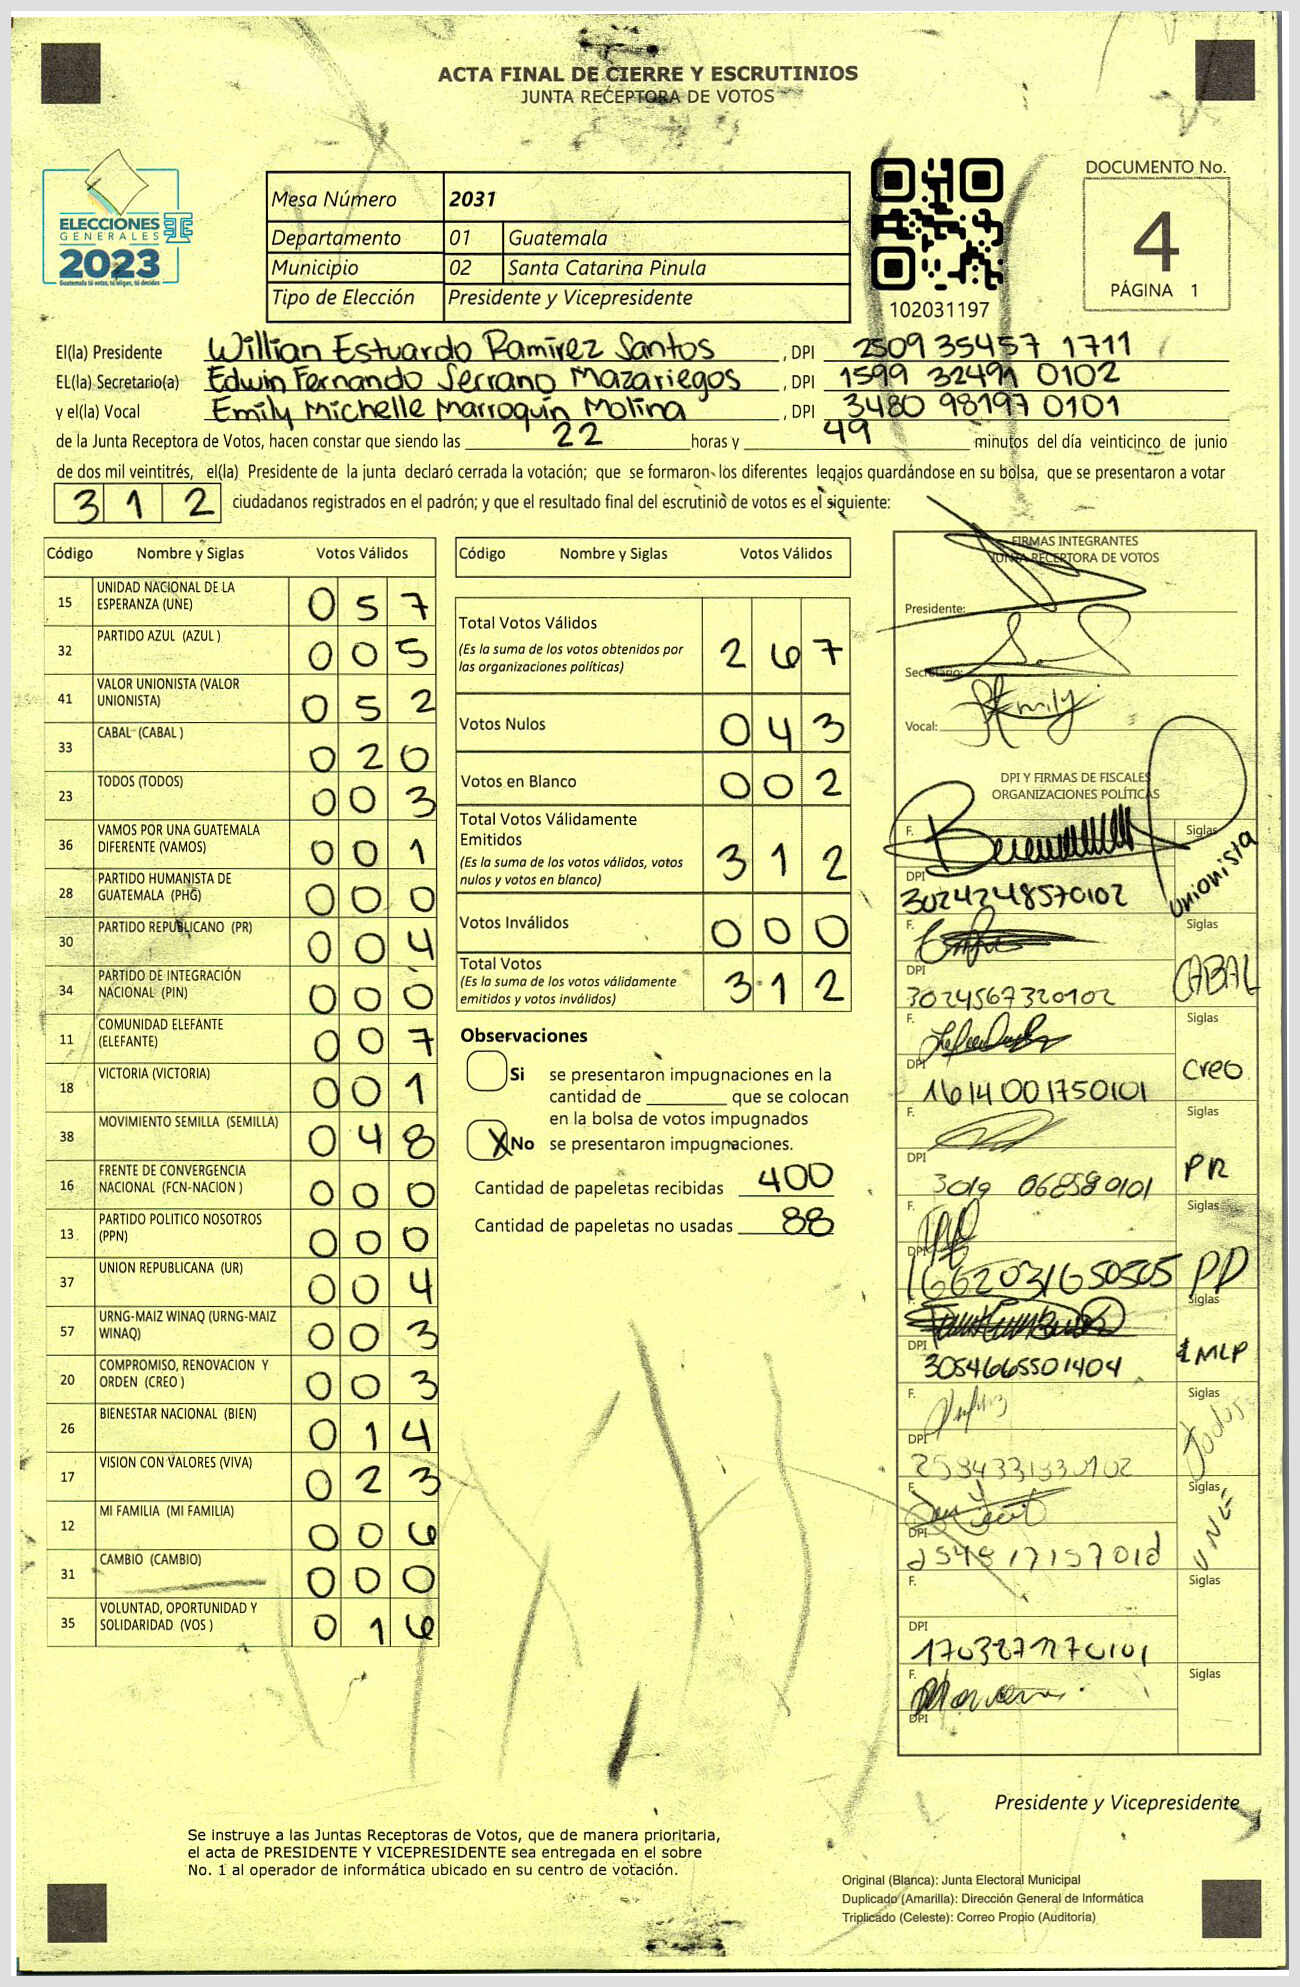 ACTA FINAL DE CIERRE Y ESCRUTINIOS
JUNTA RECEPTORA DE VOTOS
ELECCIONES
GENERALES
2023
Guatemala tú votas, tú eliges, tú decides
Mesa Número 2031
Departamento 01 Guatemala
Municipio 02 Santa Catarina Pinula
Tipo de Elección Presidente y Vicepresidente
102031197
DOCUMENTO No.
4
PÁGINA 1
El(la) Presidente Willian Estuardo Ramírez Santos , DPI 2509 35457 1711
EL(la) Secretario(a) Edwin Fernando Serrano Mazariegos , DPI 1599 32491 0102
y el(la) Vocal Emily Michelle Marroquín Molina , DPI 3480 98197 0101
de la Junta Receptora de Votos, hacen constar que siendo las 22 horas y 49 minutos del día veinticinco de junio
de dos mil veintitrés, el(la) Presidente de la junta declaró cerrada la votación; que se formaron los diferentes legajos guardándose en su bolsa, que se presentaron a votar
312 ciudadanos registrados en el padrón; y que el resultado final del escrutinio de votos es el siguiente:
Código Nombre y Siglas Votos Válidos
15 UNIDAD NACIONAL DE LA ESPERANZA (UNE) 057
32 PARTIDO AZUL (AZUL ) 005
41 VALOR UNIONISTA (VALOR UNIONISTA) 052
33 CABAL (CABAL ) 020
23 TODOS (TODOS) 003
36 VAMOS POR UNA GUATEMALA DIFERENTE (VAMOS) 001
28 PARTIDO HUMANISTA DE GUATEMALA (PHG) 000
30 PARTIDO REPUBLICANO (PR) 004
34 PARTIDO DE INTEGRACIÓN NACIONAL (PIN) 000
11 COMUNIDAD ELEFANTE (ELEFANTE) 007
18 VICTORIA (VICTORIA) 001
38 MOVIMIENTO SEMILLA (SEMILLA) 048
16 FRENTE DE CONVERGENCIA NACIONAL (FCN-NACION ) 000
13 PARTIDO POLITICO NOSOTROS (PPN) 000
37 UNION REPUBLICANA (UR) 004
57 URNG-MAIZ WINAQ (URNG-MAIZ WINAQ) 003
20 COMPROMISO, RENOVACION Y ORDEN (CREO ) 003
26 BIENESTAR NACIONAL (BIEN) 014
17 VISION CON VALORES (VIVA) 023
12 MI FAMILIA (MI FAMILIA) 006
31 CAMBIO (CAMBIO) 000
35 VOLUNTAD, OPORTUNIDAD Y SOLIDARIDAD (VOS ) 016
Código Nombre y Siglas Votos Válidos
Total Votos Válidos 267
(Es la suma de los votos obtenidos por
las organizaciones políticas)
Votos Nulos 043
Votos en Blanco 002
Total Votos Válidamente
Emitidos 312
(Es la suma de los votos válidos, votos
nulos y votos en blanco)
Votos Inválidos 000
Total Votos 312
(Es la suma de los votos válidamente
emitidos y votos inválidos)
Observaciones
Si se presentaron impugnaciones en la
cantidad de ________ que se colocan
en la bolsa de votos impugnados
X No se presentaron impugnaciones.
Cantidad de papeletas recibidas 400
Cantidad de papeletas no usadas 88
FIRMAS INTEGRANTES
JUNTA RECEPTORA DE VOTOS
Presidente:
Secretario:
Vocal: Emily
DPI Y FIRMAS DE FISCALES
ORGANIZACIONES POLÍTICAS
F. Siglas
DPI 3024248570102 Unionista
F. Siglas
DPI 3024567320102 CABAL
F. Siglas
DPI 1614001750101 Creo
F. Siglas
DPI 3019 068580101 PR
F. Siglas
DPI 1662031650505 PD
F. Siglas
DPI 3054665501404 MLP
F. Siglas
DPI Todos
F. Siglas
DPI UNE
F. Siglas
DPI
F. Siglas
DPI
Presidente y Vicepresidente
Se instruye a las Juntas Receptoras de Votos, que de manera prioritaria,
el acta de PRESIDENTE Y VICEPRESIDENTE sea entregada en el sobre
No. 1 al operador de informática ubicado en su centro de votación.
Original (Blanca): Junta Electoral Municipal
Duplicado (Amarilla): Dirección General de Informática
Triplicado (Celeste): Correo Propio (Auditoria)